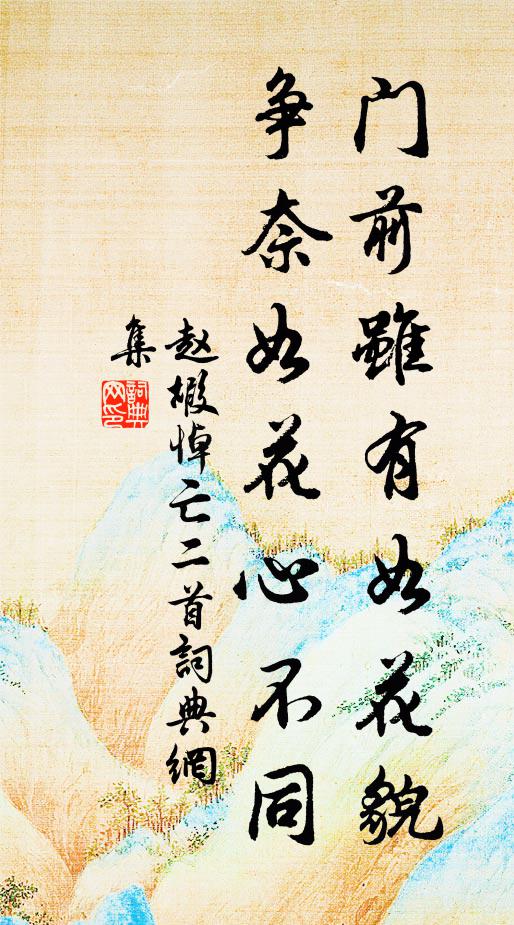 门前雖有如花貌
争奈如花心不同
赵嘏悼亡二首詞典網
集
詞典
网印